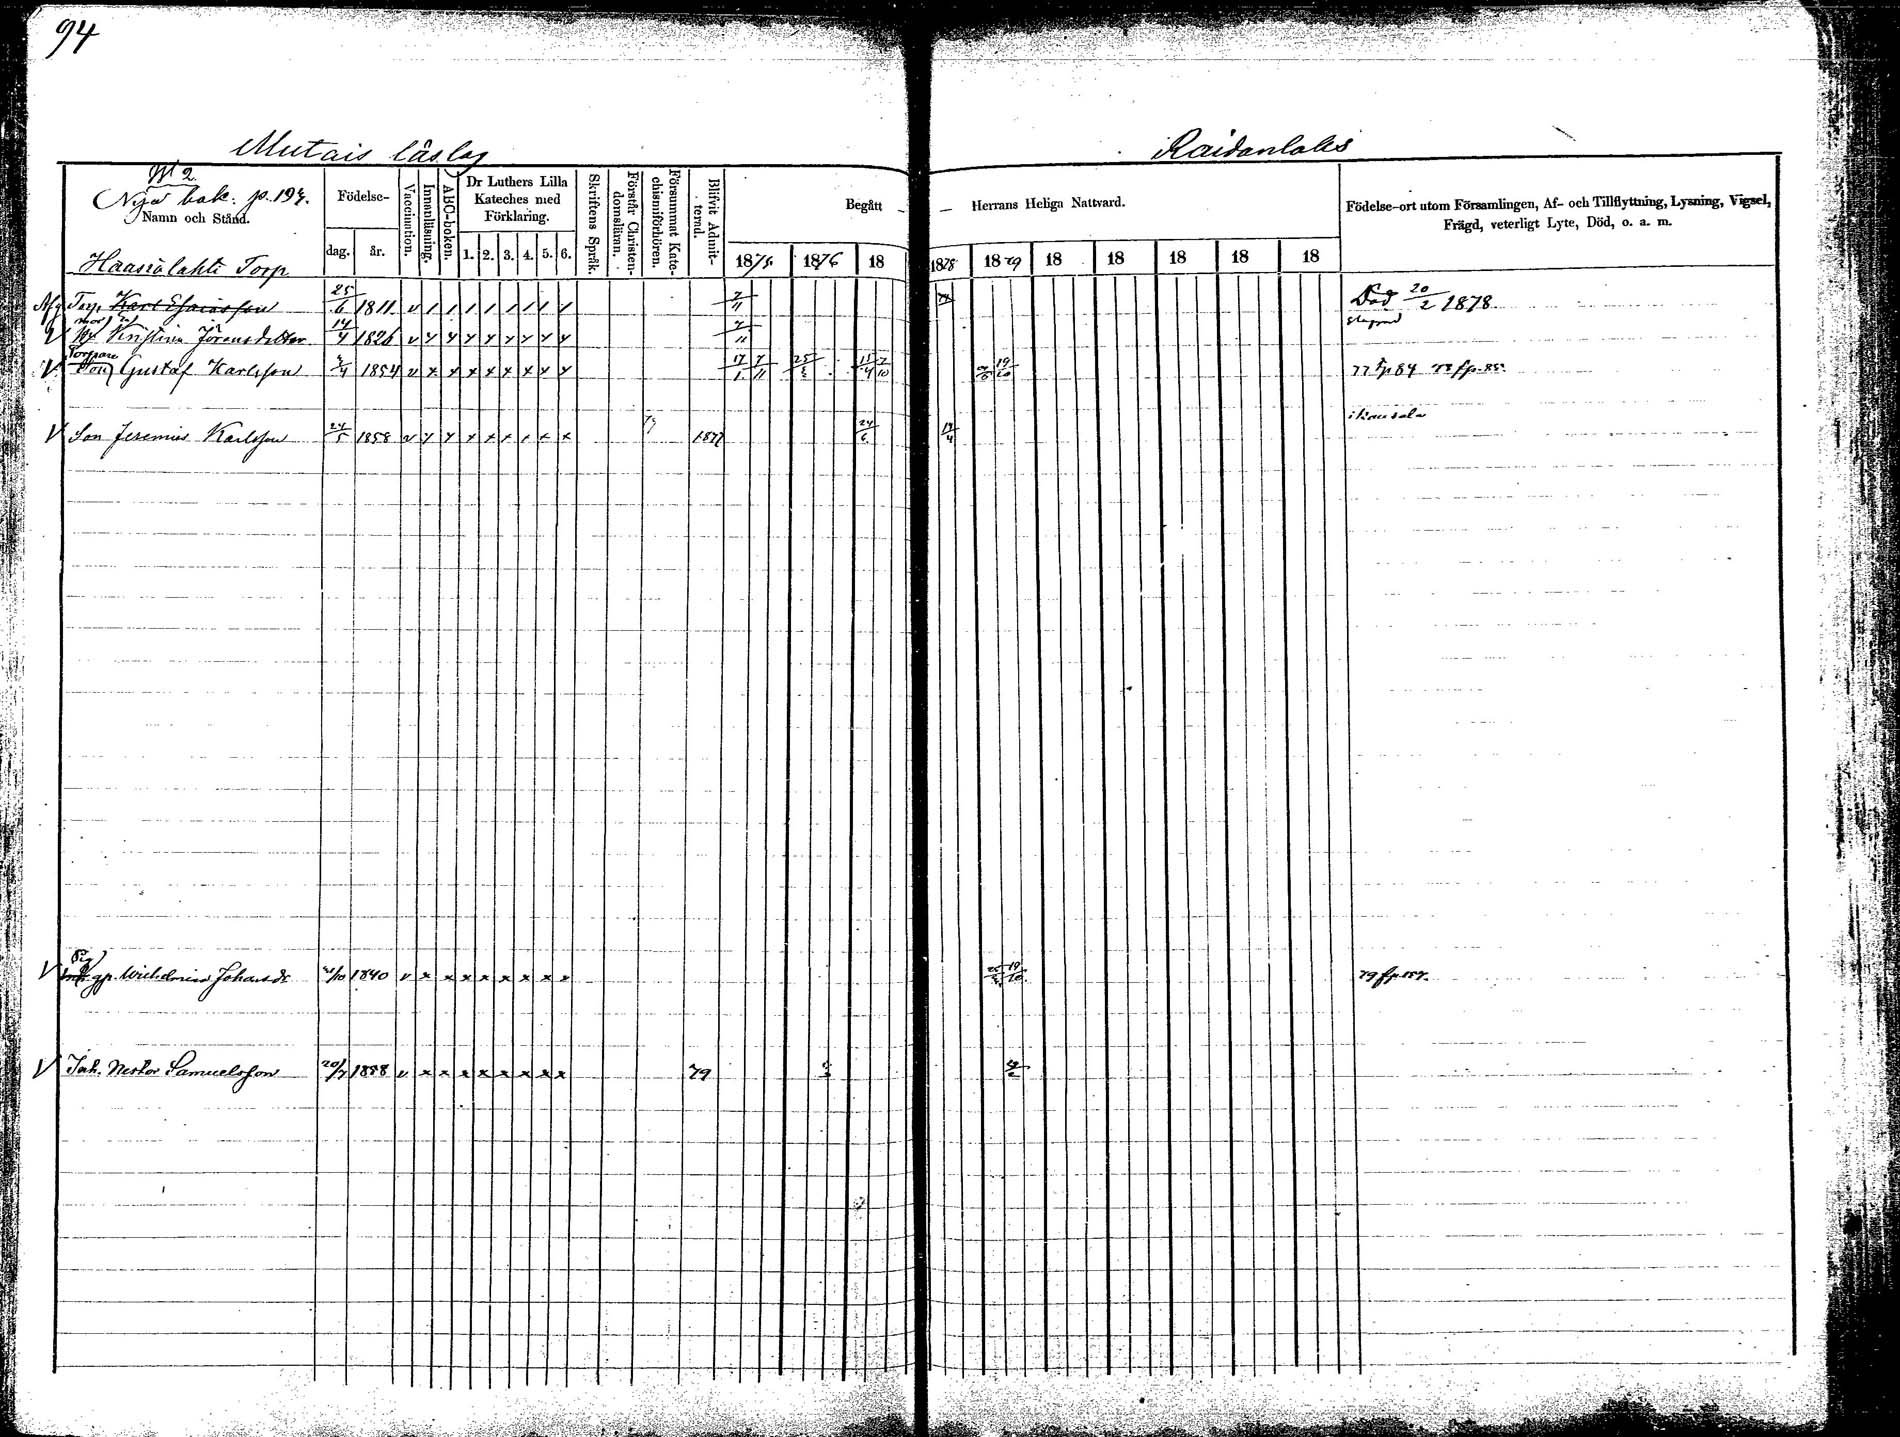 94
Mutais läslag
Raidanlaks
№ 2
Nya bok: p. 194.
Namn och Stånd.
Födelse-
dag.
år.
Vaccination.
Innanläsning.
ABC-boken.
Dr Luthers Lilla
Kateches med
Förklaring.
1. 2. 3. 4. 5. 6.
Skriftens Språk.
Förstår Christen-
domsläran.
Försummat Kate-
chismiförhören.
Blifvit Admit-
terad.
Begått — — Herrans Heliga Nattvard.
1875 1876 18 1878 1879 18 18 18 18 18
Födelse-ort utom Församlingen, Af- och Tillflyttning, Lysning, Vigsel,
Frägd, veterligt Lyte, Död, o. a. m.
Haasiälahti Torp
Torp. Karl Esaiasson 25/6 1811 v / / / / / / / / 7/11 Död 20/2 1878
Kristina Jöransdotter 14/4 1826 v 7/11
Torpare
Son Gustaf Karlsson 1854 v x x x x x x x x 17/1 7/11 25/2 15/4 7/10 19/10 77 fp 84 78 fp. 85.
Son Jeremias Karlsson 24/5 1858 v 1877 24/6 14/4
Pig
gp. Wilhelmina Johansdr 1840 v x x x x x x x x 19/10 79 fp. 157.
Joh. Nestor Samuelsson 20/7 1858 v x x x x x x x x 79